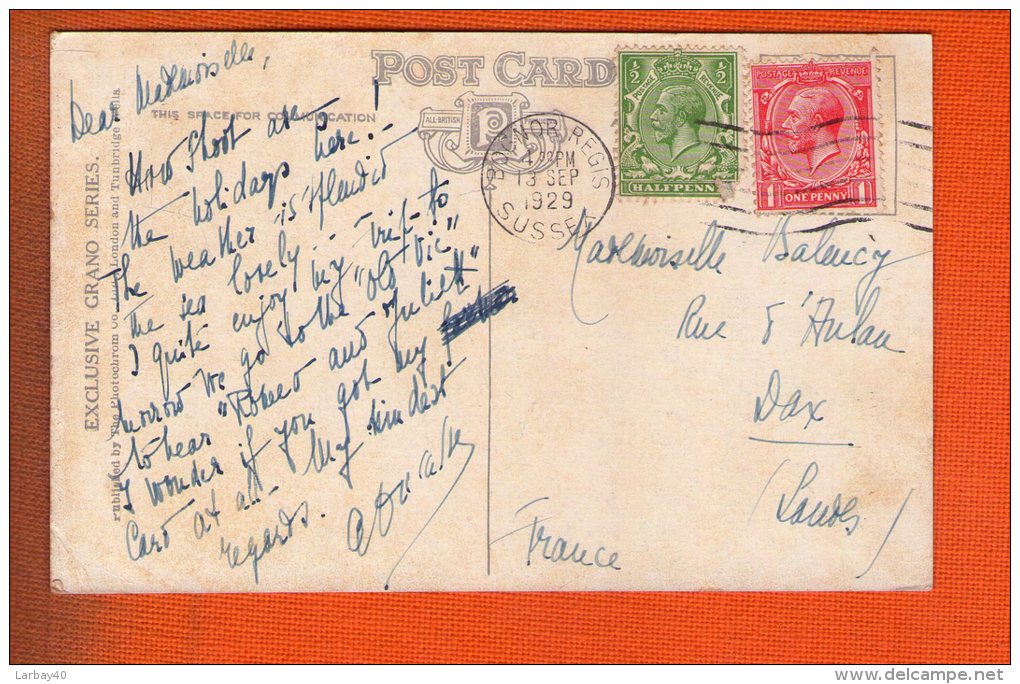 POST CARD
THIS SPACE FOR COMMUNICATION
ALL-BRITISH
EXCLUSIVE GRANO SERIES.
Published by The Photochrom Co. London and Tunbridge Wells
Dear Mademoiselle,
How short are
the holidays here!
The weather is splendid
the sea lovely
I quite enjoy my trip to
morrow we go to the "Old Vic"
to hear "Romeo and Juliett"
I wonder if you got my
Card at all. My kindest
regards.
BOGNOR REGIS
PM
13 SEP
1929
SUSSEX
½ ½
HALFPENN
POSTAGE REVENUE
1 1
ONE PENNY
Mademoiselle Balency
Rue d'Aulan
Dax
(Landes)
France
Larbay40
www.delcampe.net